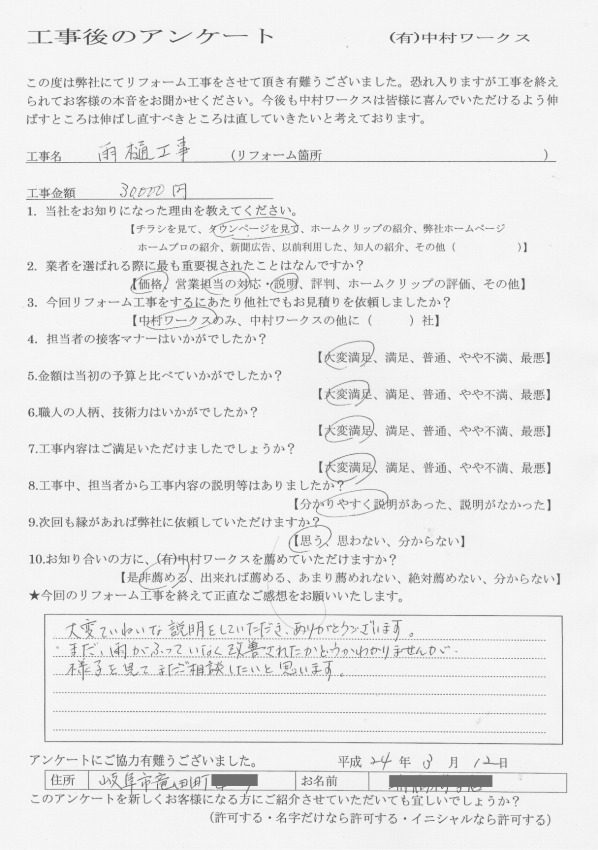 工事後のアンケート (有)中村ワークス
この度は弊社にてリフォーム工事をさせて頂き有難うございました。恐れ入りますが工事を終え
られてお客様の本音をお聞かせください。今後も中村ワークスは皆様に喜んでいただけるよう伸
ばすところは伸ばし直すべきところは直していきたいと考えております。
工事名 雨樋工事 (リフォーム箇所 )
工事金額 30,000円
1. 当社をお知りになった理由を教えてください。
【チラシを見て、タウンページを見て、ホームクリップの紹介、弊社ホームページ
ホームプロの紹介、新聞広告、以前利用した、知人の紹介、その他( )】
2. 業者を選ばれる際に最も重要視されたことはなんですか?
【価格、営業担当の対応・説明、評判、ホームクリップの評価、その他】
3. 今回リフォーム工事をするにあたり他社でもお見積りを依頼しましたか?
【中村ワークスのみ、中村ワークスの他に( )社】
4. 担当者の接客マナーはいかがでしたか?
【大変満足、満足、普通、やや不満、最悪】
5.金額は当初の予算と比べていかがでしたか?
【大変満足、満足、普通、やや不満、最悪】
6.職人の人柄、技術力はいかがでしたか?
【大変満足、満足、普通、やや不満、最悪】
7.工事内容はご満足いただけましたでしょうか?
【大変満足、満足、普通、やや不満、最悪】
8.工事中、担当者から工事内容の説明等はありましたか?
【分かりやすく説明があった、説明がなかった】
9.次回も縁があれば弊社に依頼していただけますか?
【思う、思わない、分からない】
10.お知り合いの方に、(有)中村ワークスを薦めていただけますか?
【是非薦める、出来れば薦める、あまり薦めれない、絶対薦めない、分からない】
★今回のリフォーム工事を終えて正直なご感想をお願いいたします。
大変ていねいな説明をしていただき、ありがとうございます。
まだ、雨がふっていなく改善されたかどうかわかりませんが、
様子を見てまたご相談したいと思います。
アンケートにご協力有難うございました。 平成 24 年 3 月 12 日
住所 岐阜市竜田町 お名前
このアンケートを新しくお客様になる方にご紹介させていただいても宜しいでしょうか?
(許可する・名字だけなら許可する・イニシャルなら許可する)